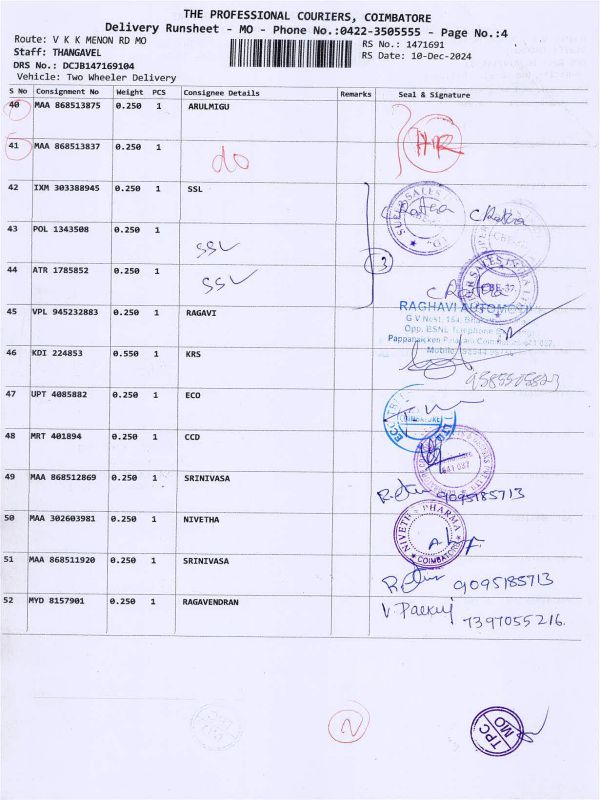 THE PROFESSIONAL COURIERS, COIMBATORE
Delivery Runsheet - MO - Phone No.:0422-3505555 - Page No.:4
Route: V K K MENON RD MO
RS No.: 1471691
Staff: THANGAVEL
RS Date: 10-Dec-2024
DRS No.: DCJB147169104
Vehicle: Two Wheeler Delivery
S No Consignment No Weight PCS Consignee Details Remarks Seal & Signature
40 MAA 868513875 0.250 1 ARULMIGU
41 MAA 868513837 0.250 1 do
42 IXM 303388945 0.250 1 SSL
43 POL 1343508 0.250 1 SSL
3
44 ATR 1785852 0.250 1 SSL
45 VPL 945232883 0.250 1 RAGAVI
RAGHAVI AUTOMOTIV
G V Nest, 164,
Opp. BSNL Telephone
Mobile
46 KDI 224853 0.550 1 KRS
47 UPT 4085882 0.250 1 ECO
48 MRT 401894 0.250 1 CCD
641 037
49 MAA 868512869 0.250 1 SRINIVASA 9095185713
50 MAA 302603981 0.250 1 NIVETHA
NIVETHA PHARMA
COIMBATORE
51 MAA 868511920 0.250 1 SRINIVASA 9095185713
52 MYD 8157901 0.250 1 RAGAVENDRAN 7397055216.
2
TPC
MO